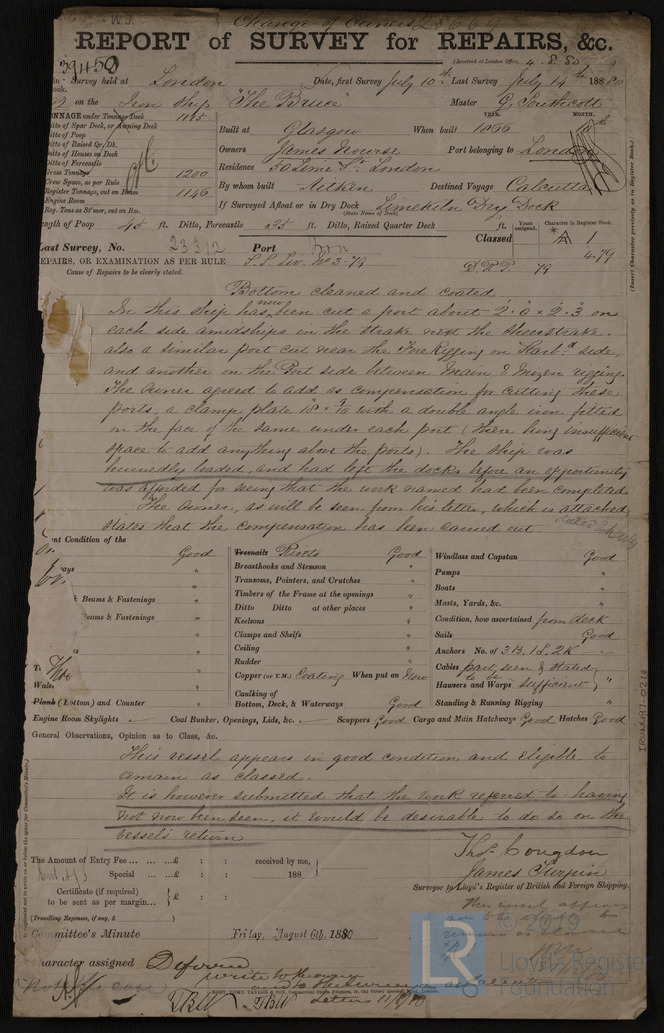 Change of Owners
REPORT of SURVEY for REPAIRS, &c.
(Received at London Office, 4.8.80
Survey held at London Date, first Survey July 10th Last Survey July 14th 1880
on the Iron ship "The Bruce" Master G. Southcott
TONNAGE under Tonnage Deck 1115
Ditto of Spar Deck, or Awning Deck
Ditto of Poop
Ditto of Raised Qr. Dk.
Ditto of Houses on Deck
Ditto of Forecastle
Gross Tonnage 1200
Crew Space, as per Rule
Register Tonnage, cut on Beam 1146
Engine Room
Reg. Tons as St'mer, cut on Bm.
YEAR. MONTH.
Built at Glasgow When built 1866
Owners James Nourse Port belonging to London
Residence London
By whom built Aitken Destined Voyage Calcutta
If Surveyed Afloat or in Dry Dock Limekiln Dry Dock
(State Name of Dock)
Length of Poop 45 ft. Ditto, Forecastle 35 ft. Ditto, Raised Quarter Deck ft.
Last Survey, No. 23312 Port Lon Classed A 1
Years assigned. Character in Register Book.
4.79
REPAIRS, OR EXAMINATION AS PER RULE
Cause of Repairs to be clearly stated.
(Insert Character precisely as in Register Book.)
Bottom cleaned and coated.
In this ship has now been cut a port about 2'.0 x 2'.3 on
each side amidships in the strake next the sheerstrake.
also a similar port cut near the Fore Rigging on Starbd side,
and another on the Port side between Main & Mizen rigging.
The Owner agreed to add as compensation for cutting these
ports, a clamp plate 18 x 9/16 with a double angle iron fitted
on the face of the same under each port (there being insufficient
space to add anything above the ports). The ship was
hurriedly loaded, and had left the docks before an opportunity
was afforded for seeing that the work named had been completed.
The Owner, as will be seen from his letter, which is attached
states that the compensation has been carried out
Present Condition of the
Good
Beams & Fastenings "
Beams & Fastenings "
Wales
Plank (Bottom) and Counter "
Treenails Rivets Good
Breasthooks and Stemson "
Transoms, Pointers, and Crutches "
Timbers of the Frame at the openings "
Ditto Ditto at other places "
Keelsons "
Clamps and Shelfs "
Ceiling "
Rudder "
Copper (or Y.M.) Coating When put on Now
Caulking of
Bottom, Deck, & Waterways Good
Windlass and Capstan Good
Pumps "
Boats "
Masts, Yards, &c. "
Condition, how ascertained from deck
Sails Good
Anchors No. of 3B. 1S. 2K
Cables part seen & stated
to be
Hawsers and Warps sufficient
Standing & Running Rigging "
Engine Room Skylights Coal Bunker, Openings, Lids, &c. Scuppers Good Cargo and Main Hatchways Good Hatches Good
General Observations, Opinion as to Class, &c.
This vessel appears in good condition and eligible to
remain as classed.
It is however submitted that the work referred to having
not now been seen, it would be desirable to do so on the
vessel's return
Thos. Congdon
James Turpin
Surveyor to Lloyd's Register of British and Foreign Shipping.
The Amount of Entry Fee £ : : received by me,
Special £ : : 188
Certificate (if required)
to be sent as per margin £ : :
(Travelling Expenses, if any, £ )
Committee's Minute Friday, August 6th, 1880
Character assigned Deferred
IRON197-0214
© 2019
LR
Lloyd's Register
Foundation